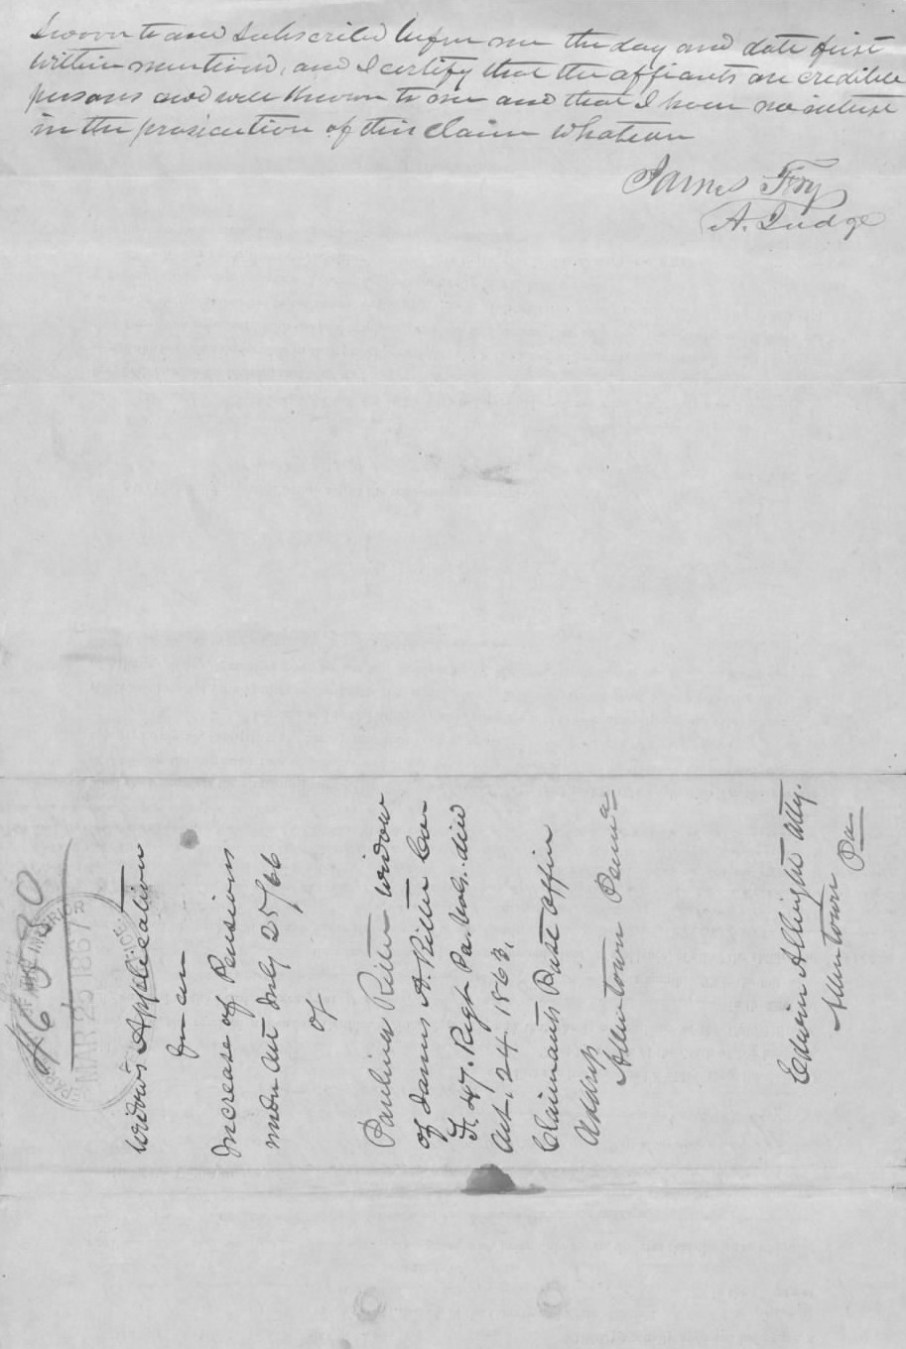 Sworn to and Subscribed before me the day and date first
within mentioned, and I certify that the affiants are credible
persons and well known to me and that I have no interest
in the prosecution of this claim whatever
James Fry
A. Judge
46 030
MAR 25 1867
OFFICE
Widows Application
for an
Increase of Pensions
under Act July 25/66
of
Paulina Ritter widow
of James A. Ritter Com
F. 47. Regt Pa. Vols. died
Oct. 24 1863.
Claimants Post Office
Address
Allentown Penna
Edwin Albright Atty.
Allentown
Pa